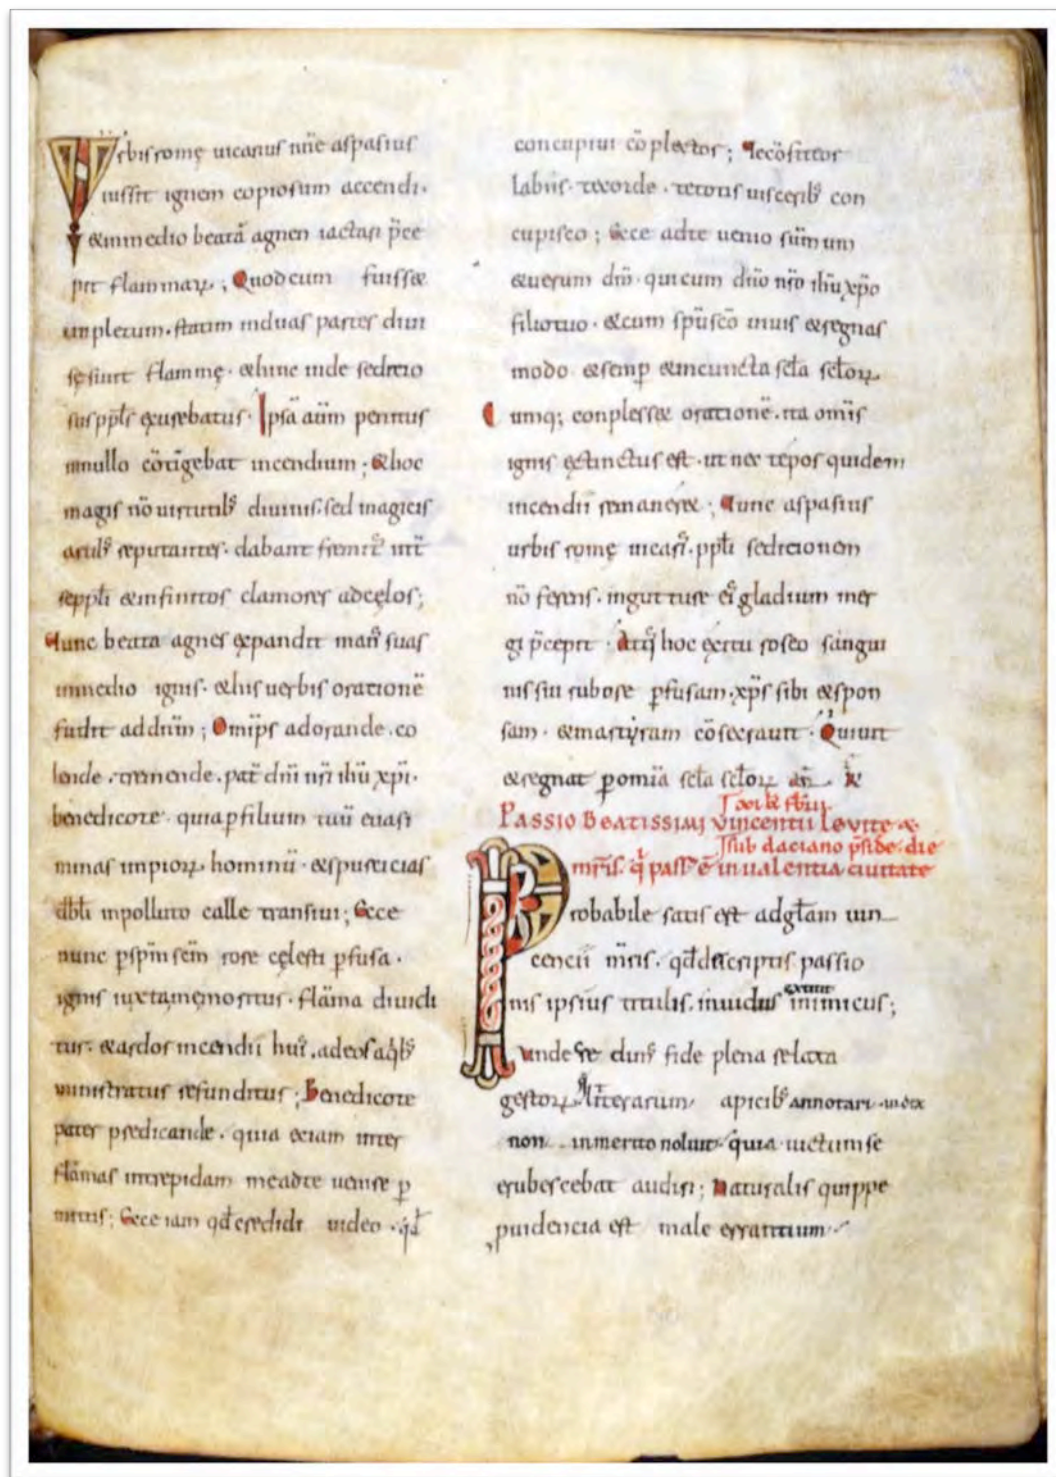 Urbis romę uicarius nne aspasius
iussit ignem copiosum accendi.
& in medio beatā agnen iactari p̄ce
pit flammarꝝ; Quod cum fuiss&
impletum. statim in duas partes diui
sę sunt flammę. & hinc inde seditio
sus ppl̄s exurebatur. Ipsā aūm penitus
in nullo cōtigebat incendium; & hoc
magis nō uirtutib; diuinis. sed magicis
artib; reputantes. dabant fremit; int̄
se ppl̄i & infinitos clamores ad cęlos;
Tunc beata agnes expandit man; suas
in medio ignis. & his uerbis orationē
fudit ad dn̄m; Omīps adorande. co
lende. tremende. pat̄ dn̄i nr̄i ihū xp̄i.
benedico te. quia p filium tuū euasi
minas impiorꝝ hominū. & spurcicias
dbl̄i inpolluto calle transiui; Ecce
nunc p sp̄m sc̄m rore cęlesti pfusa.
ignis iuxta me moritur. flāma diuidi
tur. & ardor incendii hui;. ad eos a qb;
ministratur refunditur; Benedico te
pater predicande. quia eciam inter
flāmas intrepidam me ad te uenire p
mittis; Ecce iam qd̄ credidi uideo. qd̄
concupiui cōplector; Te cōfiteor
labiis. te corde. te totis uisceribꝰ con
cupisco; Ecce ad te uenio sūmum
& uerum dm̄. qui cum dn̄o nr̄o ihū xp̄o
filio tuo. & cum sp̄u sc̄o uiuis & regnas
modo & semp & in cuncta scl̄a scl̄orꝝ
Cumq; conpless& orationē. ita omīs
ignis extinctus est. ut nec tepos quidem
incendii remaner&; Tunc aspasius
urbis romę uicari;. ppl̄i seditionen
nō ferens. in gutture ei; gladium mer
gi p̄cepit. Atq; hoc exitu roseo sangui
nis sui rubore pfusam. xp̄s sibi & spon
sam. & martyram cōsecrauit. Qui uiit
& regnat p omīa scl̄a scl̄orꝝ am̄
Passio Beatissimi vincentii levite &
sub daciano p̄side. die
mr̄is. q̄ pass; ē in ualentia ciuitate
Probabile satis est ad gl̄am uin
cencii mr̄is. qd̄ de scriptis passio
nis ipsius titulis. inuidus inimicus;
unde fide plena relata
gestorꝝ litterarum apicib; annotari iudex
non inmerito noluit. quia uictum se
erubescebat audiri; Naturalis quippe
puidencia est male errantium